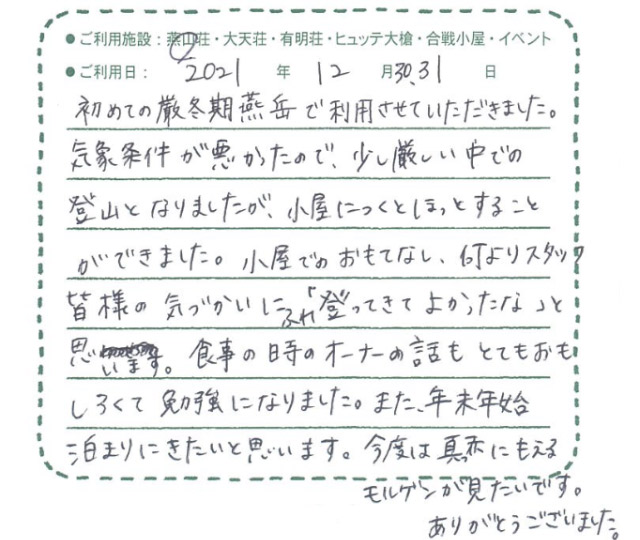 ●ご利用施設：燕山荘・大天荘・有明荘・ヒュッテ大槍・合戦小屋・イベント
●ご利用日： 2021 年 12 月 30,31 日
初めての厳冬期燕岳で利用させていただきました。
気象条件が悪かったので、少し厳しい中での
登山となりましたが、小屋につくとほっとすること
ができました。小屋でのおもてなし、何よりスタッフ
皆様の気づかいにふれ「登ってきてよかったな」と
思います。食事の時のオーナーの話もとてもおも
しろくて勉強になりました。また、年末年始
泊まりにきたいと思います。今度は真っ赤にもえる
モルゲンが見たいです。
ありがとうございました。